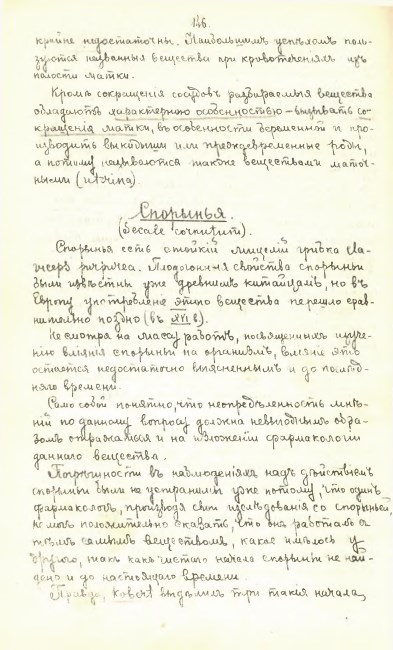 146.
крайне недостаточны. Наибольшимъ успѣхомъ поль-
зуются названныя вещества при кровотеченіяхъ изъ
полости матки.
Кромѣ сокращенія сосудовъ разбираемыя вещества
обладаютъ характерною особенностью – вызывать со-
кращенія матки, въ особенности беременной и про-
изводить выкидыши или преждевременные роды,
а потому называются также веществами маточ-
ными (uterina)
Спорынья.
(Secale cornutum).
Спорынья есть стойкій мицелій грибка Cla-
viceps purpurea. Плодогонныя свойства спорыньи
были извѣстны уже древнимъ китайцамъ, но въ
Европу употребленіе этого вещества перешло срав-
нительно поздно (въ XVI в).
Не смотря на массу работъ, посвященныхъ изуче-
нію вліянія спорыньи на организмъ, вліяніе это
остается недостаточно выясненнымъ и до послѣд-
няго времени.
Само собой понятно, что неопредѣленность мнѣ-
ній по данному вопросу должна невыгоднымъ обра-
зомъ отражаться и на изложеніи фармакологіи
даннаго вещества.
Погрѣшности въ наблюденіяхъ надъ дѣйствіемъ
спорыньи были не устранимы уже потому, что одинъ
фармакологъ, производя свои изслѣдованія со спорыньей,
не могъ положительно сказать, что онъ работаетъ съ
тѣмъ самымъ веществомъ, какое имѣлось у
другого, такъ какъ чистаго начала спорыньи не най-
дено и до настоящаго времени.
Правда, Kobert выдѣлилъ три такія начала,